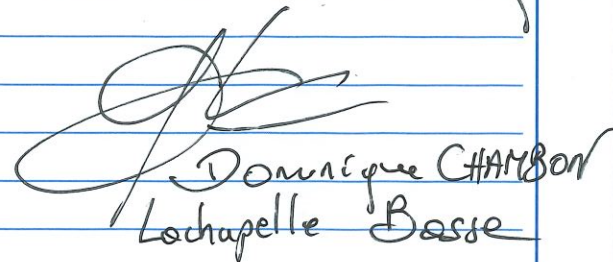 Dominique CHAMBON
Lachapelle Basse